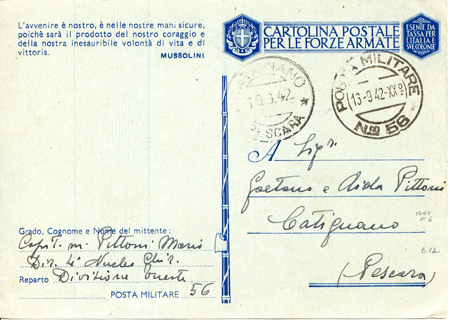 L'avvenire è nostro, è nelle nostre mani sicure,
poichè sarà il prodotto del nostro coraggio e
della nostra inesauribile volontà di vita e di
vittoria.
MUSSOLINI
CARTOLINA POSTALE
PER LE FORZE ARMATE
ESENTE DA
TASSA PER
L'ITALIA E
SUE COLONIE
CATIGNANO
PESCARA
POSTA MILITARE
(13-9-42-XXº)
Nº 56
A Sigr
Gaetano e Aida Pittoni
Catignano
(Pescara)
Grado, Cognome e Nome del mittente:
Capit. m. Pittoni Mario
Dir. 4º Nucleo Chir.
Reparto Divisione Trieste
POSTA MILITARE 56